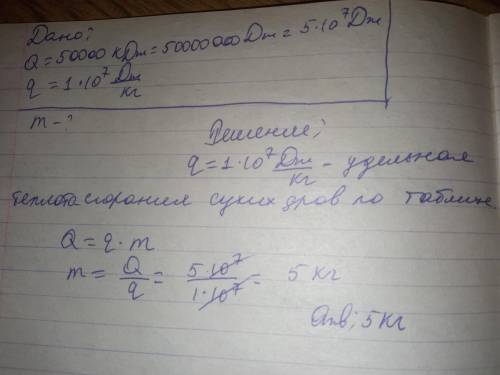 Дано:
Q = 50000 кДж = 50000000 Дж = 5·10⁷ Дж
q = 1·10⁷ Дж/кг
m - ?
Решение:
q = 1·10⁷ Дж/кг - удельная
теплота сгорания сухих дров по таблице
Q = q·m
m = Q/q = 5·10⁷/1·10⁷ = 5 кг
Отв: 5 кг